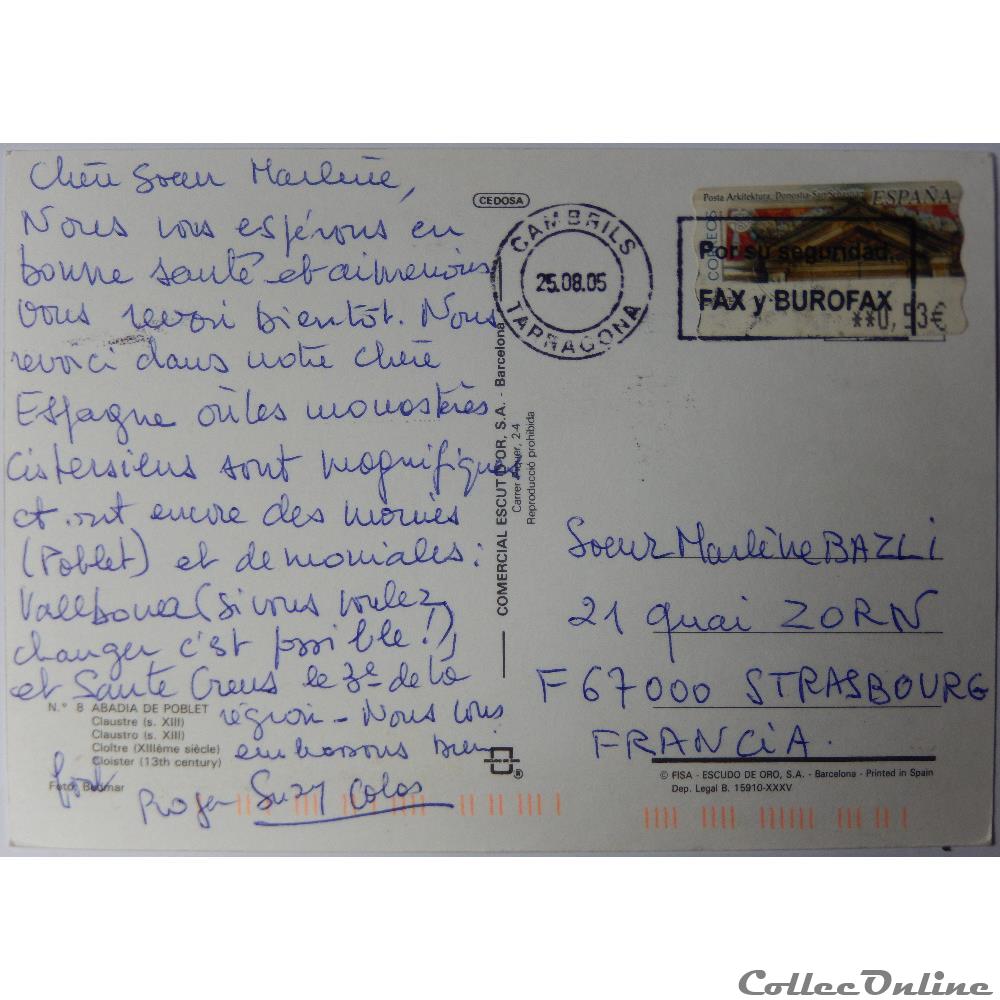 Chère Soeur Marlène,
Nous vous espérons en
bonne santé et aimerions
vous revoir bientôt. Nous
revoici dans notre chère
Espagne où les monastères
cistersiens sont magnifiques
et ont encore des moines
(Poblet) et de moniales :
Vallbona (si vous voulez
changer c'est possible !),
et Sante Creus le 3e de la
région - Nous vous
embrassons bien
fort
Roger Suzy Colas
N.° 8 ABADIA DE POBLET
Claustre (s. XIII)
Claustro (s. XIII)
Cloître (XIIIème siècle)
Cloister (13th century)
Foto: Bedmar
CEDOSA
COMERCIAL ESCUT D'OR, S.A. - Barcelona
Carrer Alguer, 2-4
Reproducció prohibida
CAMBRILS
25.08.05
TARRAGONA
Posta Arkitektura, Donostia-San Sebastián ESPAÑA
CORREOS
Por su seguridad,
FAX y BUROFAX
**0,53€
Soeur Marlène BAZLI
21 quai ZORN
F 67000 STRASBOURG
FRANCIA.
© FISA - ESCUDO DE ORO, S.A. - Barcelona - Printed in Spain
Dep. Legal B. 15910-XXXV
CollecOnline